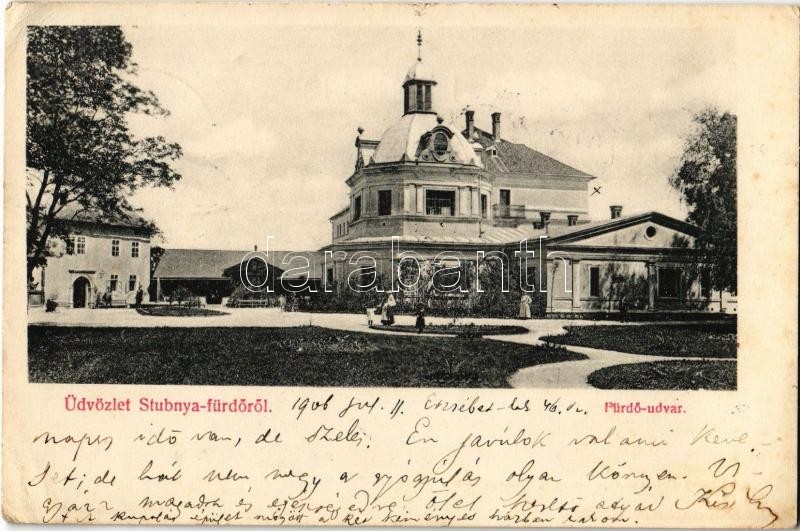 darabanth
Üdvözlet Stubnya-fürdőről. 1906 Jul. 11. Erzsébet-lak 46. sz. Fürdő-udvar.
napos idő van, de szeles. Én javúlok valami keve-
set; de hát nem megy a gyógyulás olyan könnyen. Vi-
gyázz magadra és egészségedre ölel hertő atyád
x A kupolás épület mögött a két kéményes házban lakom.